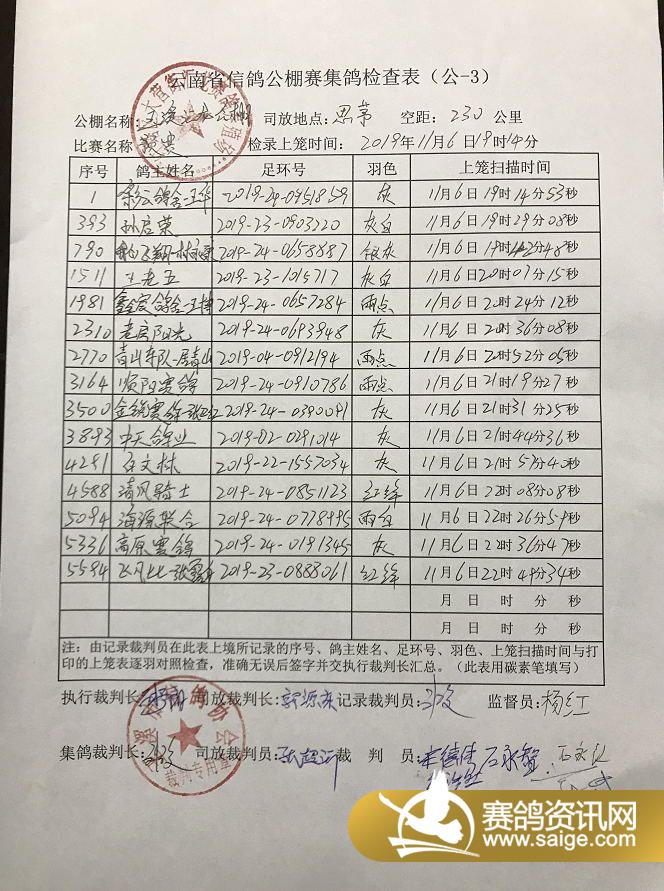 云南省信鸽公棚赛集鸽检查表（公-3）
公棚名称: 司放地点: 思茅 空距: 230 公里
比赛名称 检录上笼时间: 2019年11月6日19时14分
序号 鸽主姓名 足环号 羽色 上笼扫描时间
1 2019-24-0951859 灰 11月6日19时14分53秒
393 孙启荣 2019-23-0903220 灰白 11月6日19时29分08秒
790 2019-24-0658887 银灰 11月6日19时42分48秒
1511 王老五 2019-23-1015717 灰白 11月6日20时07分15秒
1981 2019-24-0657284 雨点 11月6日20时24分12秒
2310 老房阳光 2019-24-0693948 灰 11月6日20时36分08秒
2770 2019-04-0912194 雨点 11月6日20时52分05秒
3164 顺阳赛鸽 2019-24-0910786 雨点 11月6日21时19分27秒
3500 2019-24-0390091 灰 11月6日21时31分25秒
3893 中天鸽业 2019-02-0291014 灰 11月6日21时44分36秒
4291 石文林 2019-22-1557034 灰 11月6日21时57分40秒
4588 清风骑士 2019-24-0851123 红绛 11月6日22时08分08秒
5094 海源联合 2019-24-0778995 雨白 11月6日22时26分59秒
5336 高原赛鸽 2019-24-0191345 灰 11月6日22时36分47秒
5594 2019-23-0888061 红绛 11月6日22时49分34秒
月 日 时 分 秒
月 日 时 分 秒
注：由记录裁判员在此表上境所记录的序号、鸽主姓名、足环号、羽色、上笼扫描时间与打
印的上笼表逐羽对照检查，准确无误后签字并交执行裁判长汇总。（此表用碳素笔填写）
执行裁判长: 司放裁判长: 记录裁判员: 监督员: 杨红
集鸽裁判长: 司放裁判员: 裁 判 员:
裁判专用章
赛鸽资讯网
www.saige.com